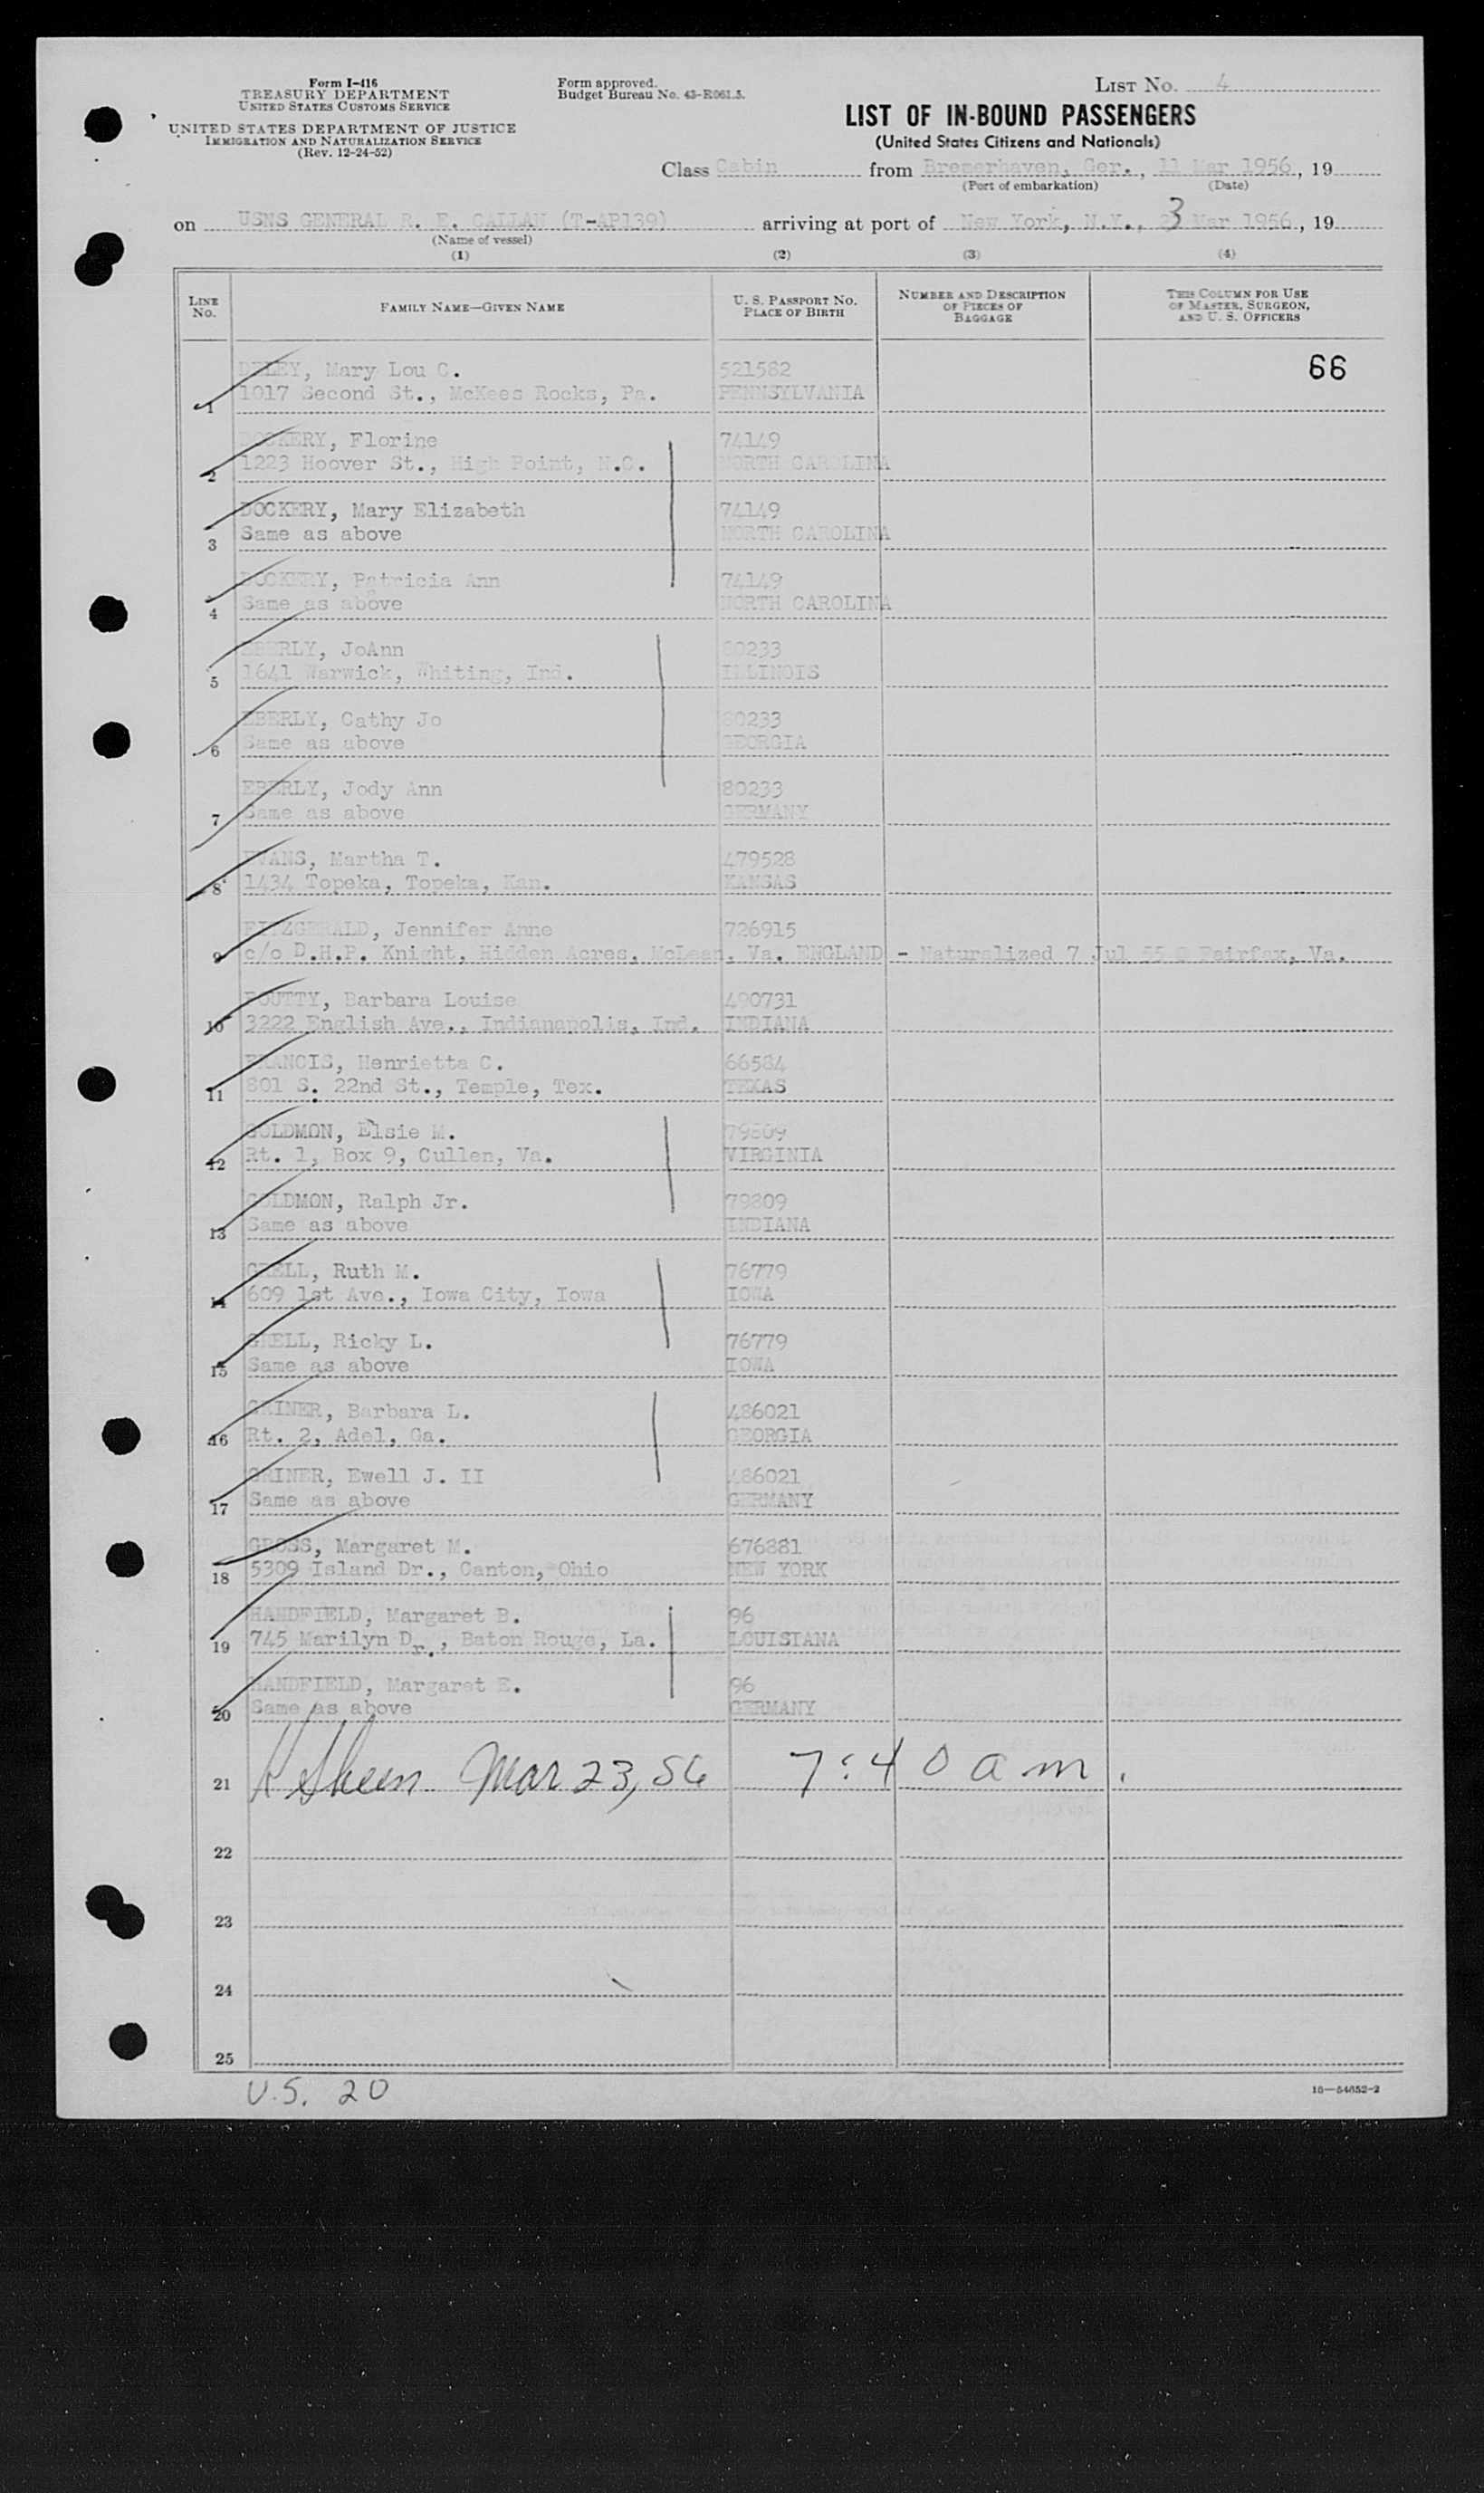 Form I-416
TREASURY DEPARTMENT
UNITED STATES CUSTOMS SERVICE
UNITED STATES DEPARTMENT OF JUSTICE
IMMIGRATION AND NATURALIZATION SERVICE
(Rev. 12-24-52)
Form approved.
Budget Bureau No. 43-R061.5.
LIST NO. 4
LIST OF IN-BOUND PASSENGERS
(United States Citizens and Nationals)
Class Cabin from Bremerhaven, Ger., 11 Mar 1956, 19
(Port of embarkation) (Date)
on USNS GENERAL R. E. CALLAN (T-AP139) arriving at port of New York, N.Y., 23 Mar 1956, 19
(Name of vessel)
(1) (2) (3) (4)
LINE NO. FAMILY NAME—GIVEN NAME U. S. PASSPORT NO. PLACE OF BIRTH NUMBER AND DESCRIPTION OF PIECES OF BAGGAGE THIS COLUMN FOR USE OF MASTER, SURGEON, AND U. S. OFFICERS
Mary Lou C. 521582 66
1 1017 Second St., McKees Rocks, Pa. PENNSYLVANIA
DOCKERY, Florine 74149
2 1223 Hoover St., High Point, N.C. NORTH CAROLINA
DOCKERY, Mary Elizabeth 74149
3 Same as above NORTH CAROLINA
DOCKERY, Patricia Ann 74149
4 Same as above NORTH CAROLINA
EBERLY, JoAnn 80233
5 1641 Warwick, Whiting, Ind. ILLINOIS
EBERLY, Cathy Jo 80233
6 Same as above GEORGIA
EBERLY, Jody Ann 80233
7 Same as above GERMANY
EVANS, Martha T. 479528
8 1434 Topeka, Topeka, Kan. KANSAS
FITZGERALD, Jennifer Anne 726915
9 c/o D.H.P. Knight, Hidden Acres, McLean, Va. ENGLAND - Naturalized 7 Jul 55 @ Fairfax, Va.
FOUTTY, Barbara Louise 490731
10 3222 English Ave., Indianapolis, Ind. INDIANA
FRANCIS, Henrietta C. 66584
11 801 S. 22nd St., Temple, Tex. TEXAS
GOLDMON, Elsie M. 79809
12 Rt. 1, Box 9, Cullen, Va. VIRGINIA
GOLDMON, Ralph Jr. 79809
13 Same as above INDIANA
GRELL, Ruth M. 76779
14 609 1st Ave., Iowa City, Iowa IOWA
GRELL, Ricky L. 76779
15 Same as above IOWA
GRINER, Barbara L. 486021
16 Rt. 2, Adel, Ga. GEORGIA
GRINER, Ewell J. II 486021
17 Same as above GERMANY
GROSS, Margaret M. 676881
18 5309 Island Dr., Canton, Ohio NEW YORK
HANDFIELD, Margaret B. 96
19 745 Marilyn Dr., Baton Rouge, La. LOUISIANA
HANDFIELD, Margaret E. 96
20 Same as above GERMANY
21 Mar 23, 56 7:40 am.
22
23
24
25
U.S. 20
16—54652-2